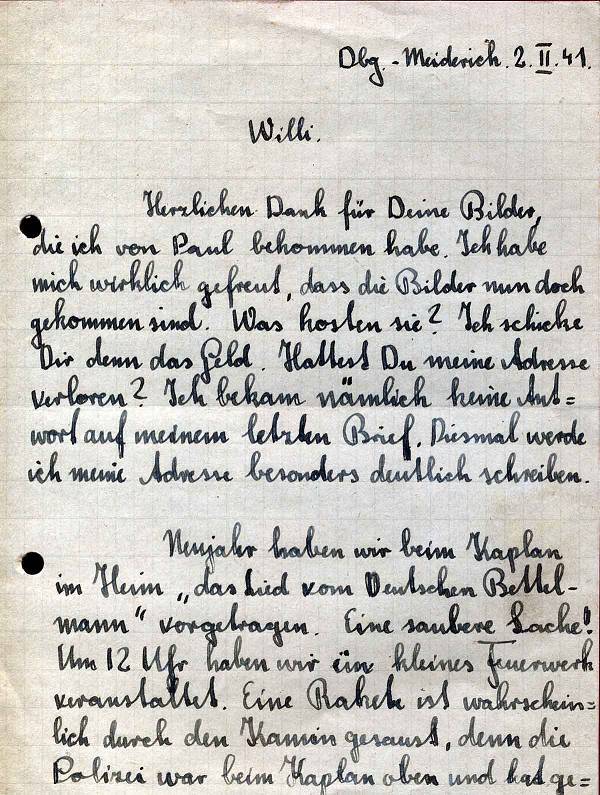 Dbg.-Meiderich. 2. II. 41.
Willi.
Herzlichen Dank für Deine Bilder,
die ich von Paul bekommen habe. Ich habe
mich wirklich gefreut, dass die Bilder nun doch
gekommen sind. Was kosten sie? Ich schicke
Dir denn das Geld. Hattest Du meine Adresse
verloren? Ich bekam nämlich keine Ant=
wort auf meinem letzten Brief. Diesmal werde
ich meine Adresse besonders deutlich schreiben.
Neujahr haben wir beim Kaplan
im Heim „das Lied vom Deutschen Bettel-
mann" vorgetragen. Eine saubere Sache!
Um 12 Uhr haben wir ein kleines Feuerwerk
veranstaltet. Eine Rakete ist wahrschein=
lich durch den Kamin gesaust, denn die
Polizei war beim Kaplan oben und hat ge=